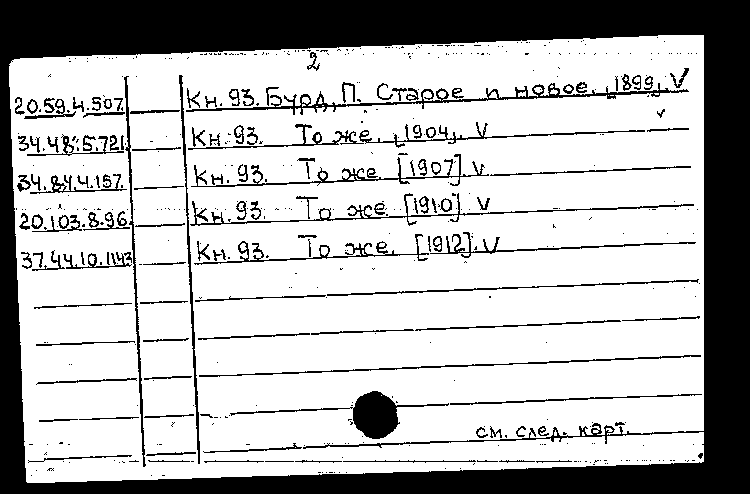 2
20.59.4.507. Кн. 93. Бурд, П. Старое и новое. [1899]. V
34.48.5.721. Кн. 93. То же. [1904]. V
34.84.4.157. Кн. 93. То же [1907]. V
20.103.8.96. Кн. 93. То же [1910] V
37.44.10.1143 Кн. 93. То же. [1912]. V
см. след. карт.